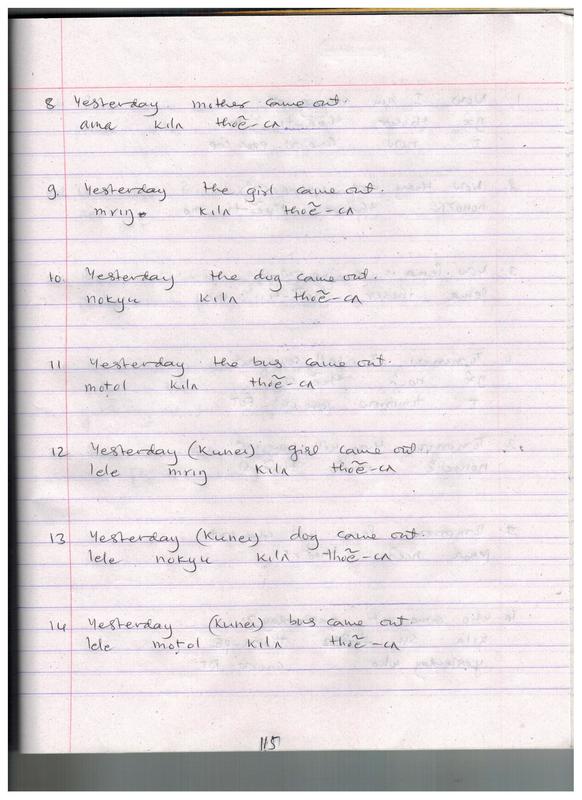 8 Yesterday mother came out.
ama kilʌ thoẽ-cʌ
9. Yesterday the girl came out.
mriŋ kilʌ thoẽ-cʌ
10. Yesterday the dog came out.
nokyu kilʌ thoẽ-cʌ
11 Yesterday the bus came out.
moṭol kilʌ thoẽ-cʌ
12 Yesterday (Kunei) girl came out
lele mriŋ kilʌ thoẽ-cʌ
13 Yesterday (Kunei) dog came out.
lele nokyu kilʌ thoẽ-cʌ
14 Yesterday (Kunei) bus came out.
lele moṭol kilʌ thoẽ-cʌ
115